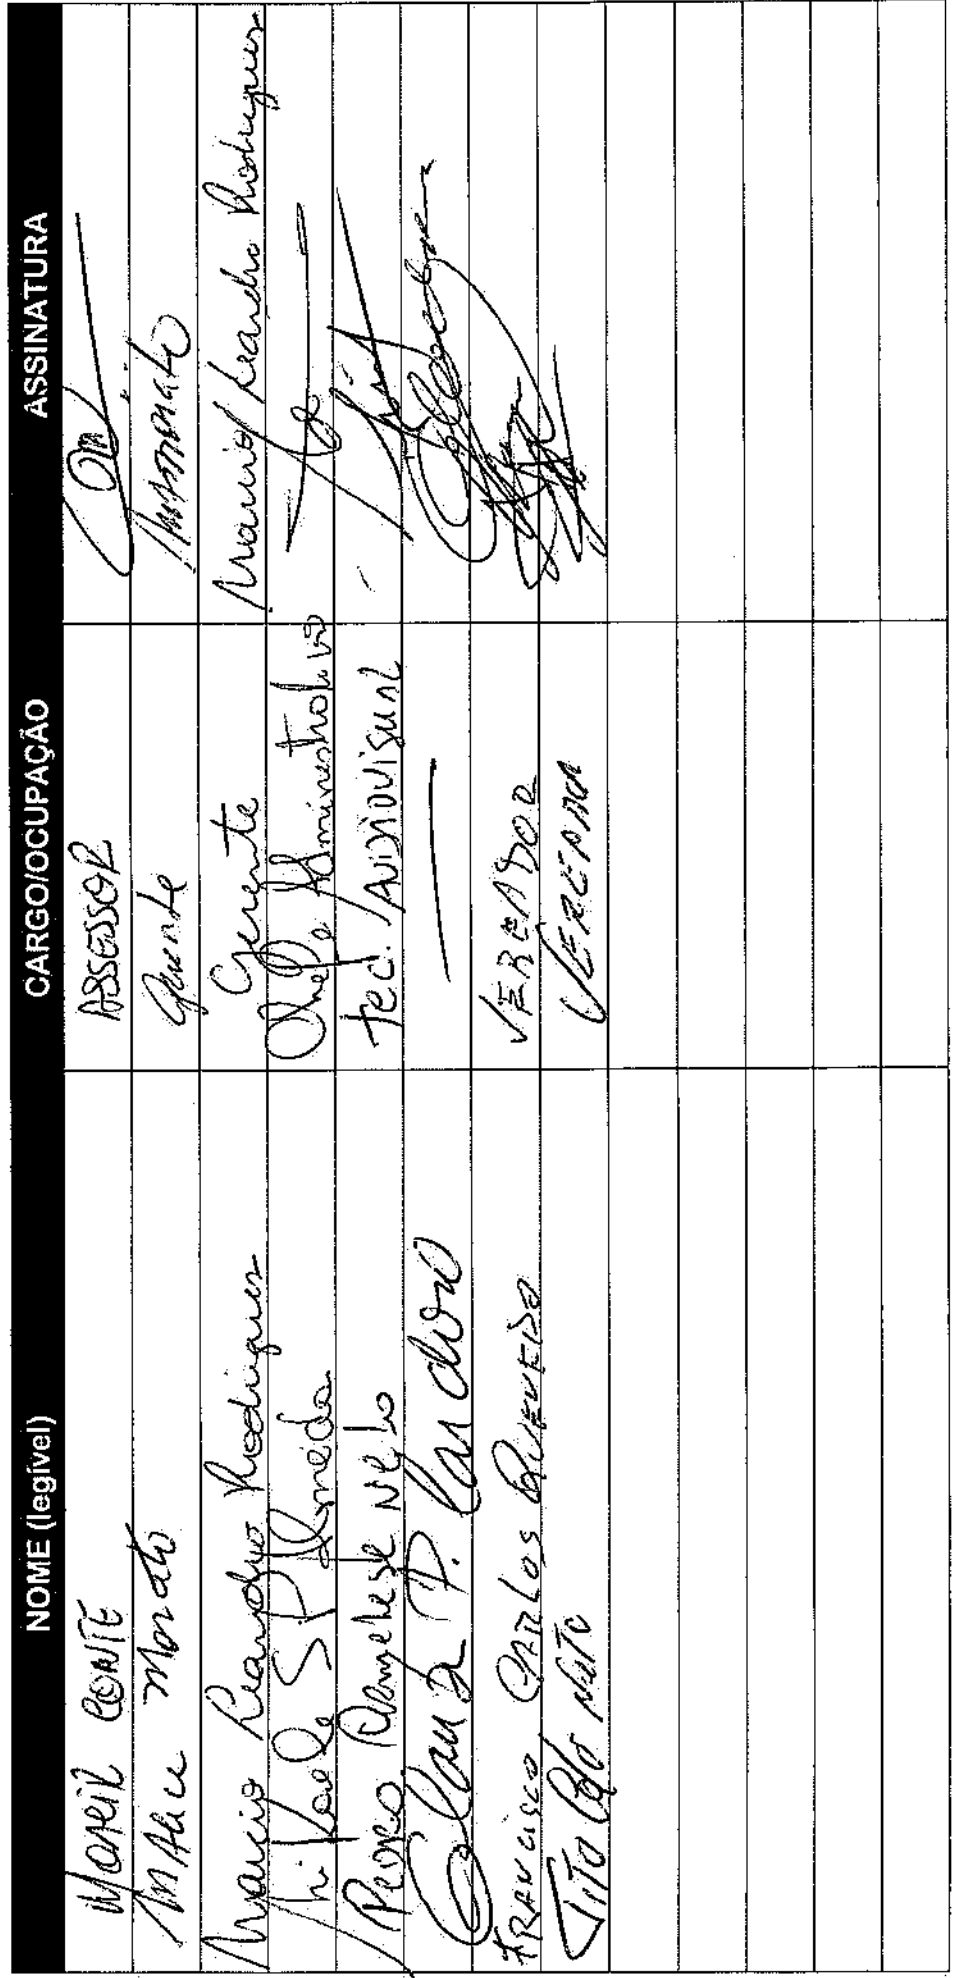 NOME (legível) CARGO/OCUPAÇÃO ASSINATURA
MOACIR CONTE ASSESSOR
MALU Morato Gerente Morato
Marcio Leandro Rodrigues Gerente Marcio Leandro Rodrigues
S P Almeida Chefe Administrativo
PEDRO Neto Tec. AUDIOVISUAL
P. —
FRANCISCO CARLOS QUEVEDO VEREADOR
TITO NETO VEREADOR